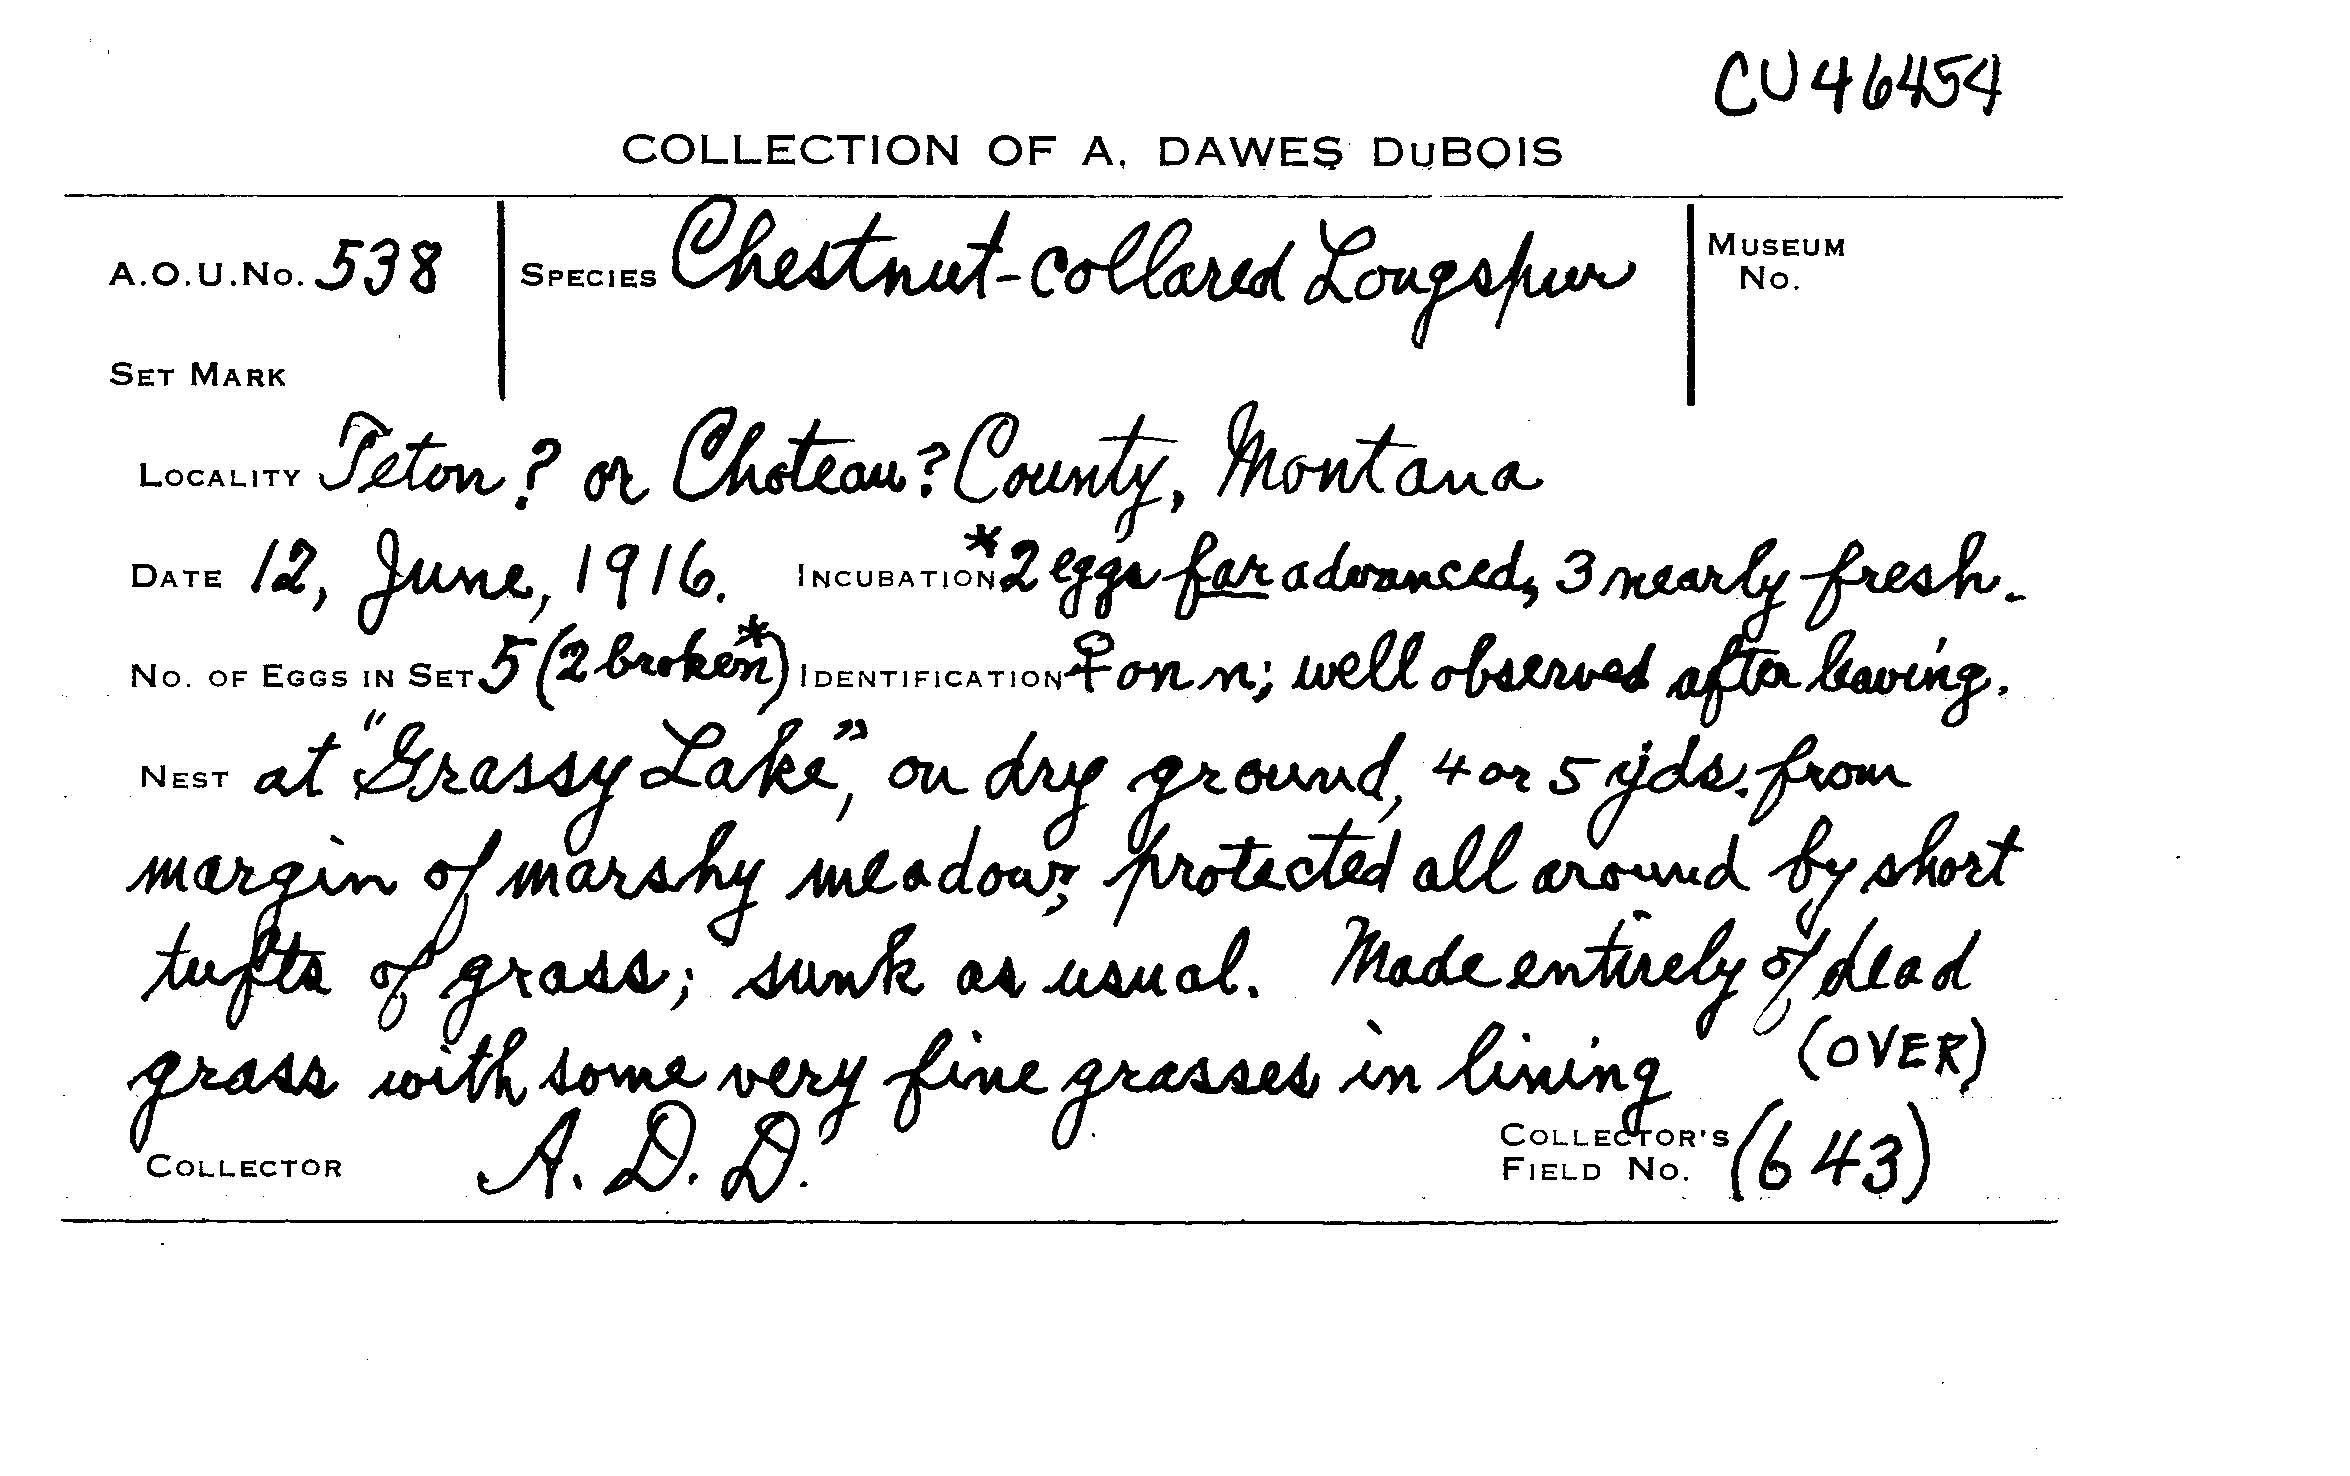 CU46454
COLLECTION OF A. DAWES DuBOIS
A.O.U. No. 538 SPECIES Chestnut-collared Longspur MUSEUM No.
SET MARK
LOCALITY Teton? or Choteau? County, Montana
DATE 12, June, 1916. INCUBATION *2 eggs far advanced, 3 nearly fresh.
NO. OF EGGS IN SET 5 (2 broken*) IDENTIFICATION ♀ on n; well observed after leaving.
NEST at "Grassy Lake", on dry ground, 4 or 5 yds. from
margin of marshy meadow; protected all around by short
tufts of grass; sunk as usual. Made entirely of dead
grass with some very fine grasses in lining (OVER)
COLLECTOR A. D. D. COLLECTOR'S FIELD No. (643)